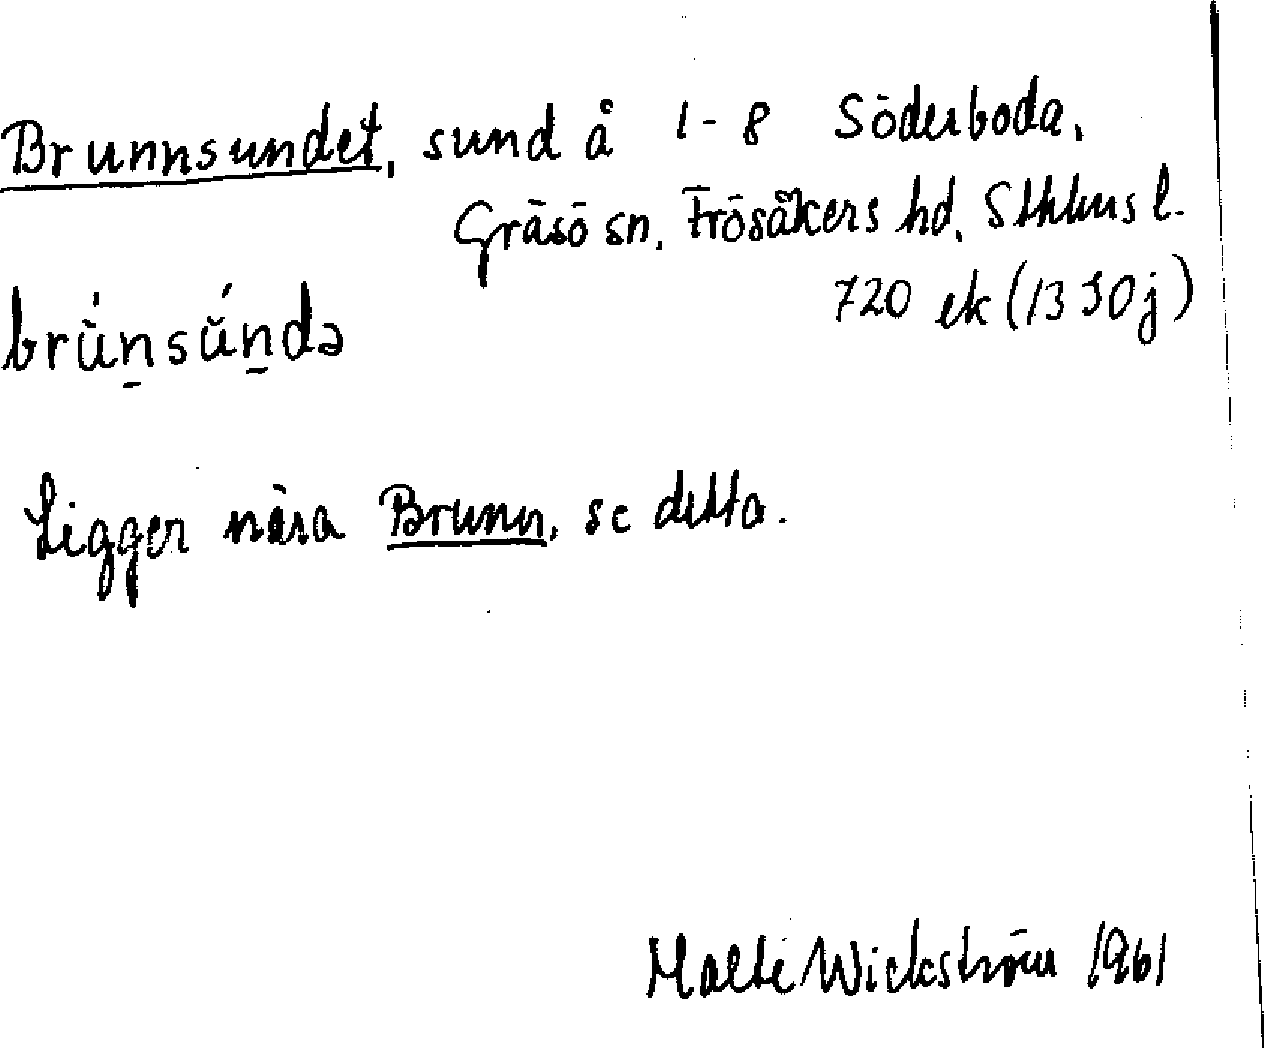 Brunnsundet, sund å 1-8 Söderboda,
Gräsö sn, Frösåkers hd, Sthlms l.
720 ek (13 30 j)
brŭ̀n̠sŭ́n̠də
Ligger nära Brunn, se detta.
Malte Wickström 1961